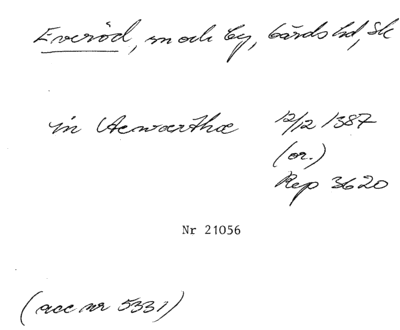 Everöd, sn och by, Gärds hd, Sk
in Aewærthæ 12/12 1387
(or.)
Rep 3620
Nr 21056
(acc nr 5331)